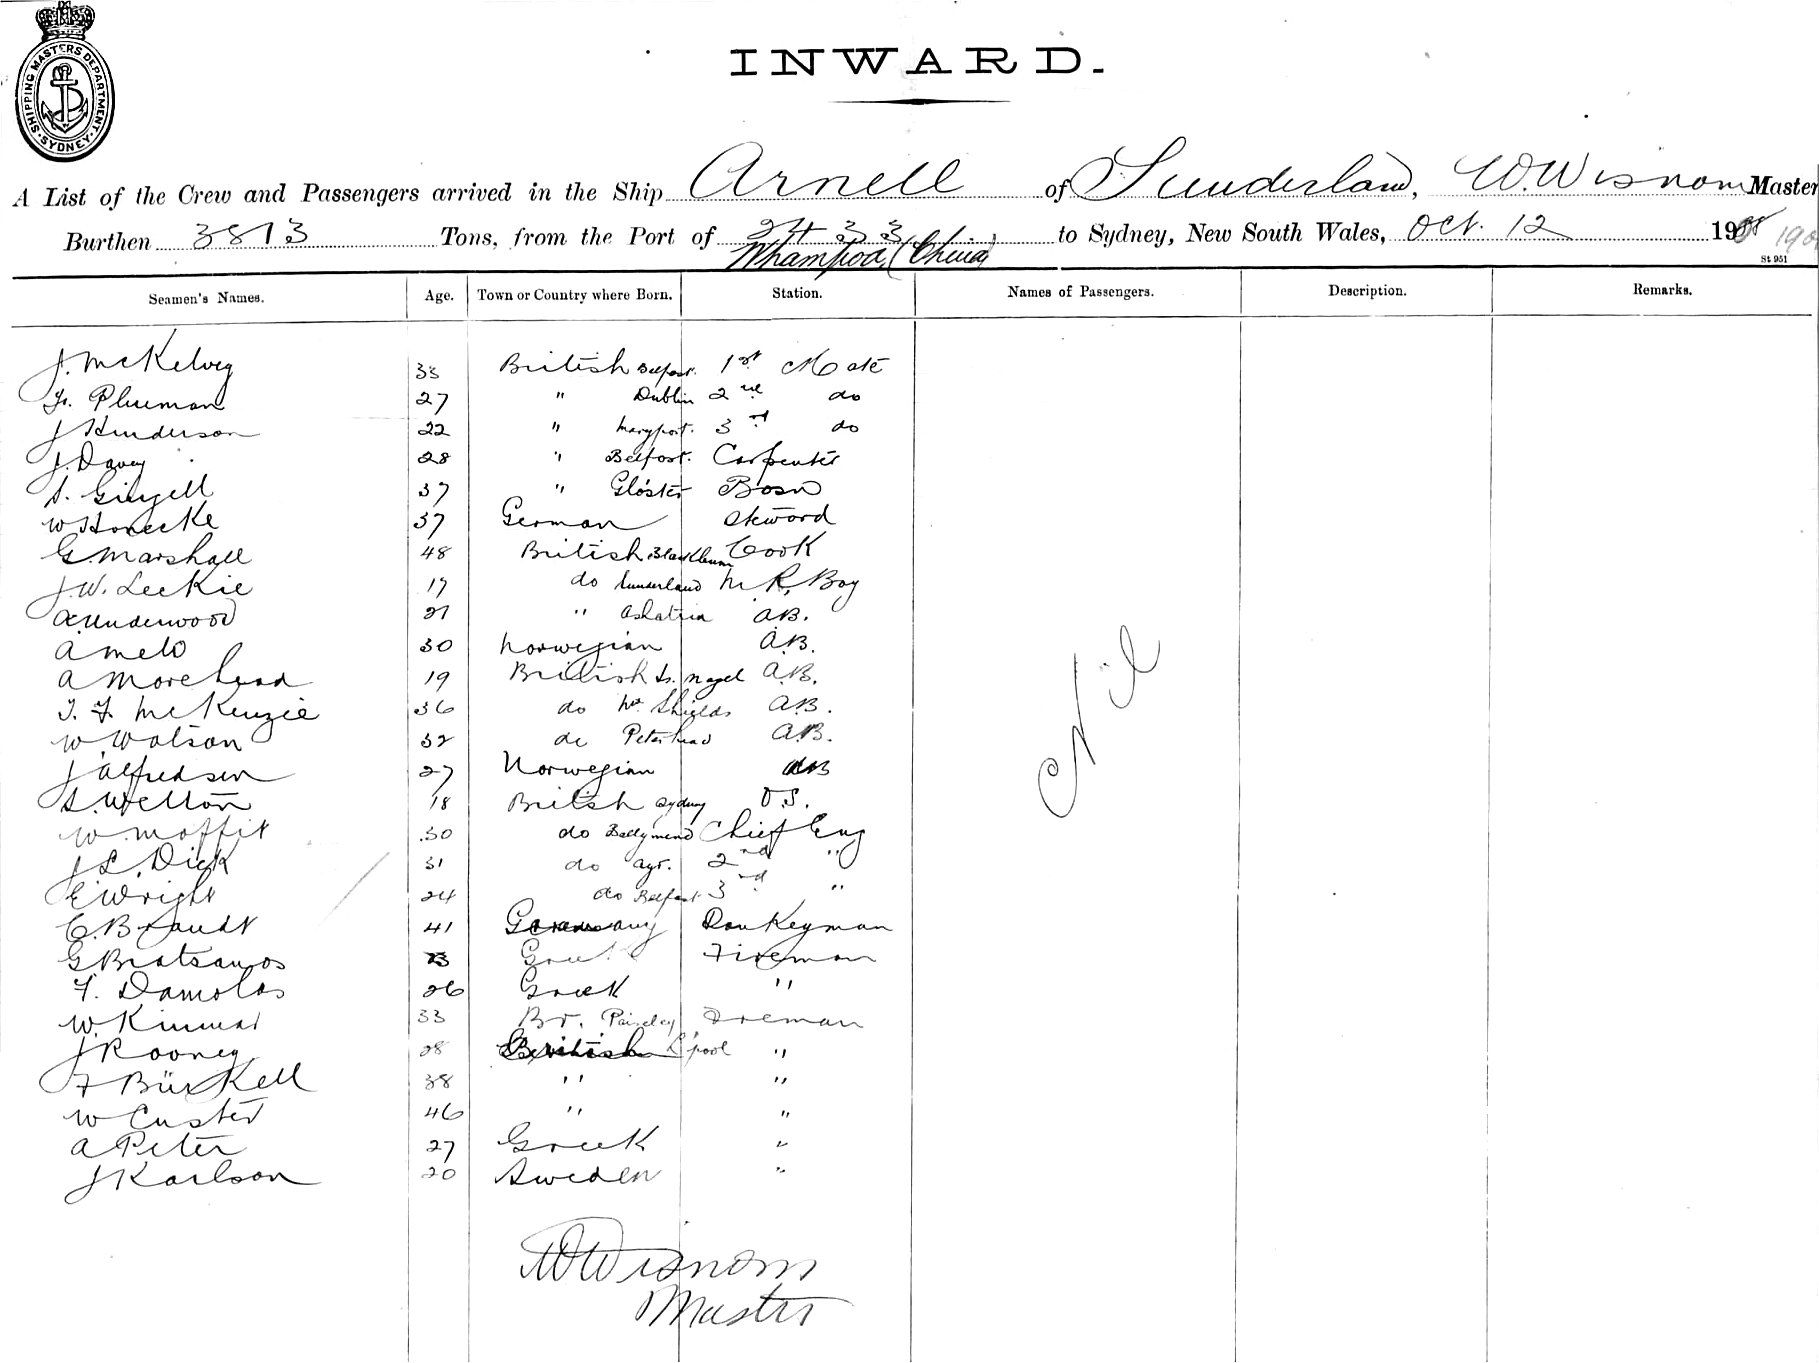 SHIPPING MASTERS DEPARTMENT. SYDNEY.
INWARD.
A List of the Crew and Passengers arrived in the Ship Arnell of Sunderland, W. Wisnom Master
Burthen 3813 Tons, from the Port of 2433 to Sydney, New South Wales, Oct. 12 19
Whampoa (China)
St 951
Seamen's Names. Age. Town or Country where Born. Station. Names of Passengers. Description. Remarks.
J. McKelvey 33 British Belfast. 1st Mate
Plueman 27 " Dublin 2nd do
J Henderson 22 " Maryport. 3rd do
J. Davey 28 " Belfast. Carpenter
S. Gingell 37 " Gloster Bosn
W Honecke 37 German Steward
G. Marshall 48 British Blackburn Cook
J. W. Leckie 17 do Sunderland M. R. Boy
A. Underwood 21 " Ashatria A.B.
A Melo 30 Norwegian A.B.
A Morehead 19 British A.B.
T. F. McKenzie 36 do Nth Shields A.B.
W. Watson 32 do Peterhead A.B.
J Alfredsen 27 Norwegian AB
S. Welton 18 British Sydney O.S.
W. Moffit 30 do Ballymena Chief Eng
J L. Dick 31 do Ayr. 2nd "
E Wright 24 do Belfast 3rd "
C. Brandt 41 Germany Donkeyman
G Bratsanos Greek Fireman
F. Damolas 26 Greek "
W. Kinmar 33 Br. Paisley Fireman
J Rooney 28 British L'pool "
F Bürkell 38 " "
W Custer 46 " "
A Peter 27 Greek "
J Karlson 20 Sweden "
Nil
W Wisnom
Master